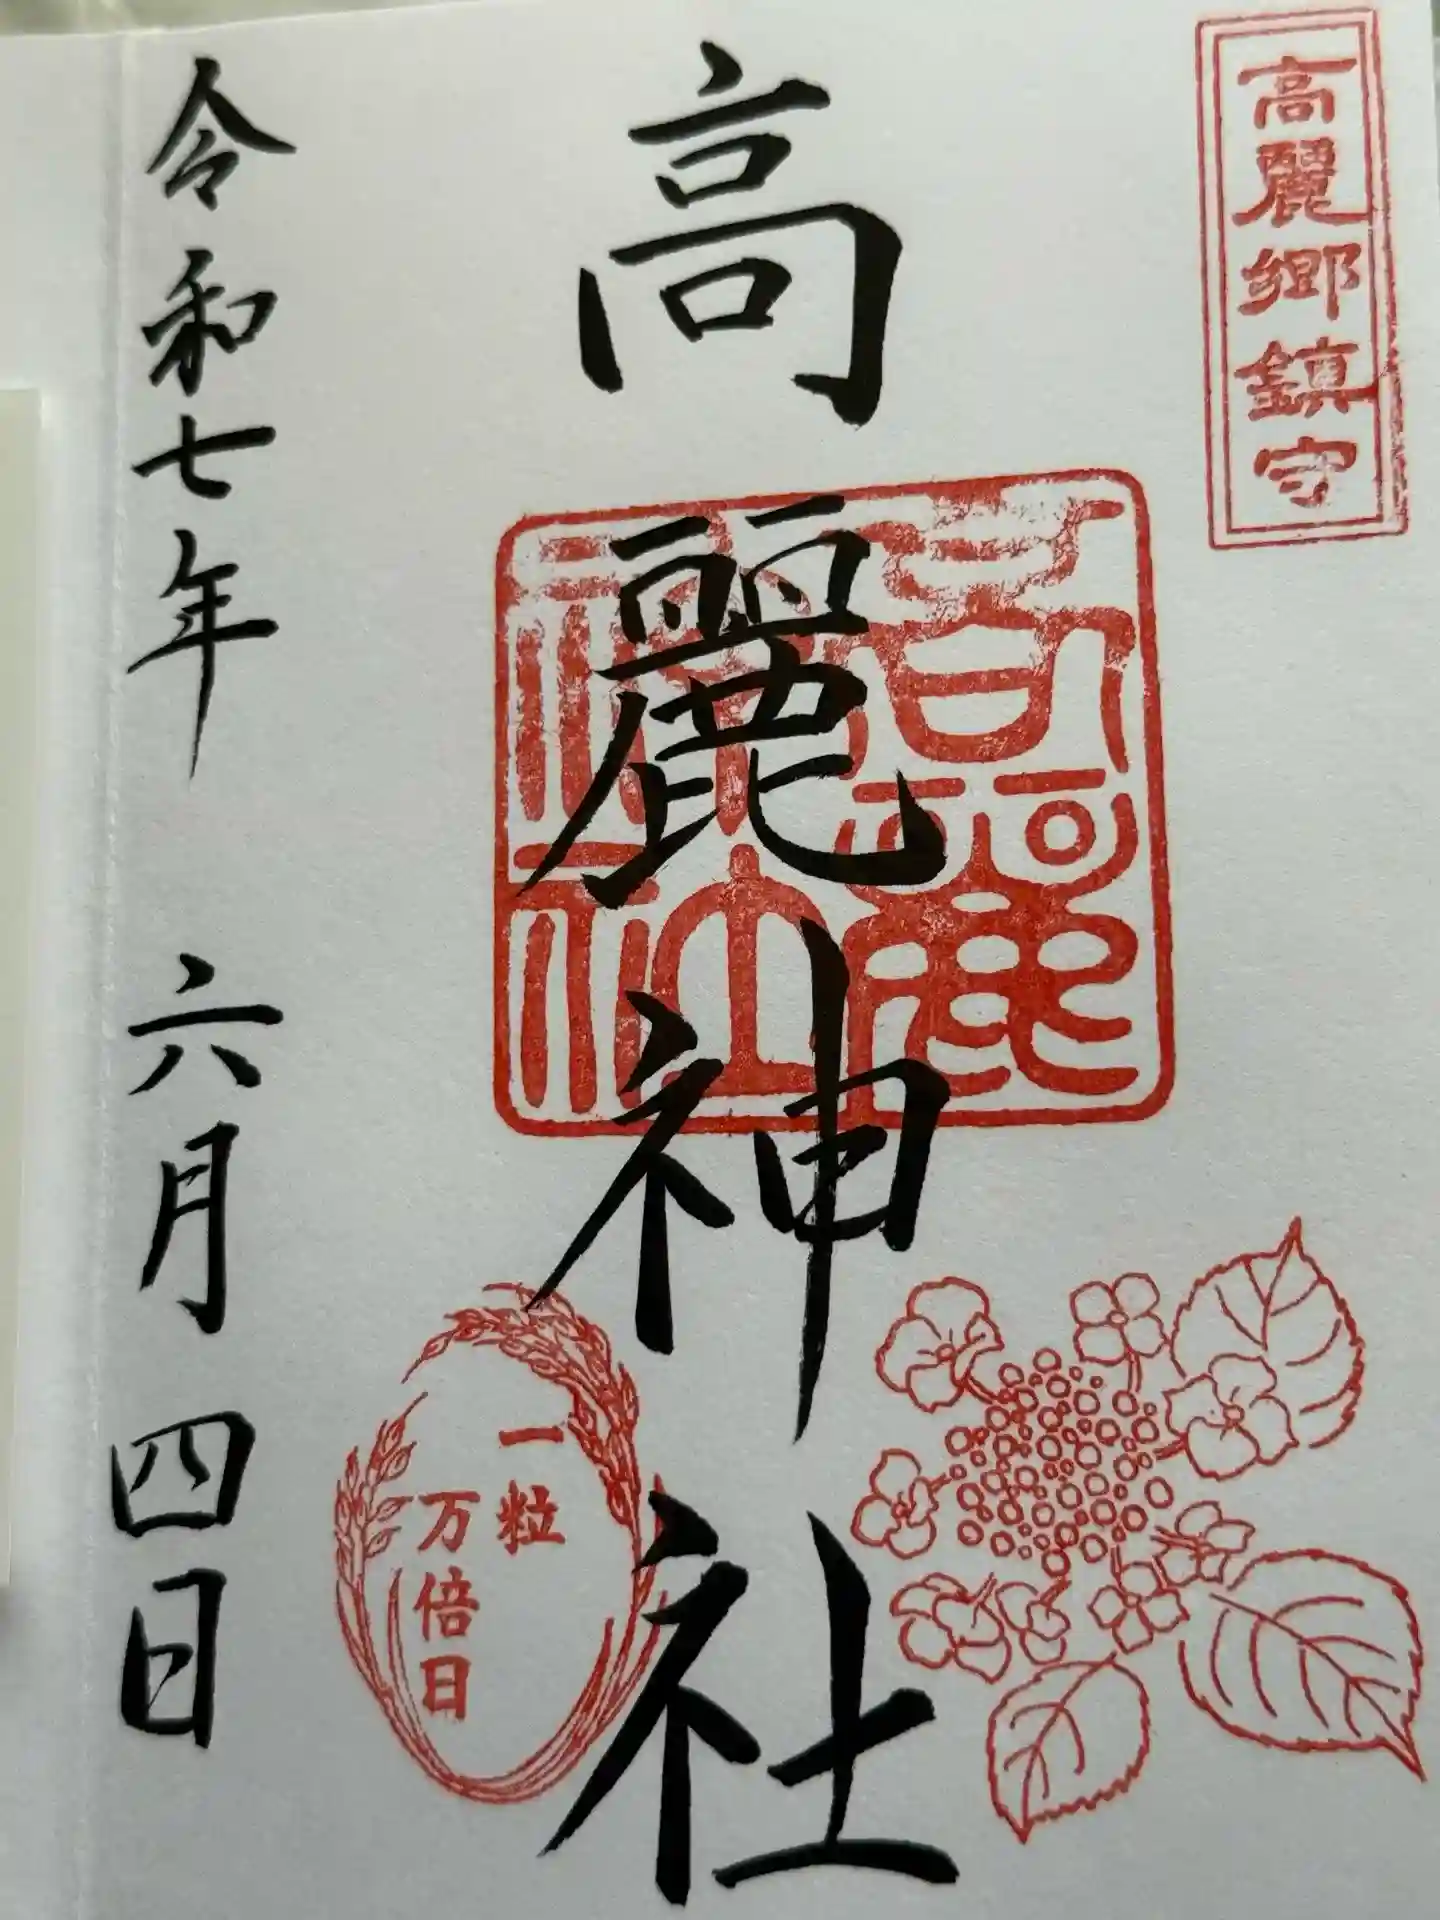 高麗郷鎮守
高麗神社
高麗神社
一粒
万倍日
令和七年 六月 四日